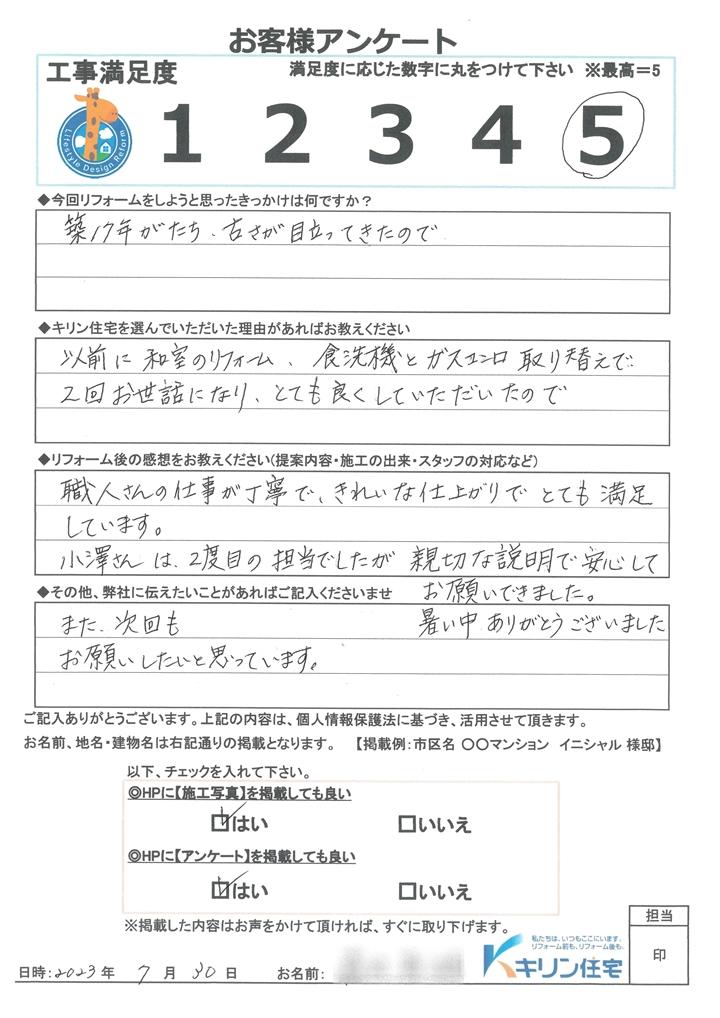 お客様アンケート
工事満足度
満足度に応じた数字に丸をつけて下さい ※最高=5
Lifestyle Design Reform
1 2 3 4 5
◆今回リフォームをしようと思ったきっかけは何ですか?
築17年がたち、古さが目立ってきたので
◆キリン住宅を選んでいただいた理由があればお教えください
以前に和室のリフォーム、食洗機とガスコンロ取り替えで
2回お世話になり、とても良くしていただいたので
◆リフォーム後の感想をお教えください(提案内容・施工の出来・スタッフの対応など)
職人さんの仕事が丁寧で、きれいな仕上がりでとても満足
しています。
小澤さんは、2度目の担当でしたが親切な説明で安心して
お願いできました。
◆その他、弊社に伝えたいことがあればご記入くださいませ
暑い中ありがとうございました
また、次回も
お願いしたいと思っています。
ご記入ありがとうございます。上記の内容は、個人情報保護法に基づき、活用させて頂きます。
お名前、地名・建物名は右記通りの掲載となります。 【掲載例:市区名 〇〇マンション イニシャル 様邸】
以下、チェックを入れて下さい。
◎HPに【施工写真】を掲載しても良い
☑はい □いいえ
◎HPに【アンケート】を掲載しても良い
☑はい □いいえ
※掲載した内容はお声をかけて頂ければ、すぐに取り下げます。
担当
印
私たちは、いつもここにいます。
リフォーム前も、リフォーム後も。
キリン住宅
日時:2023年 7月 30日 お名前: